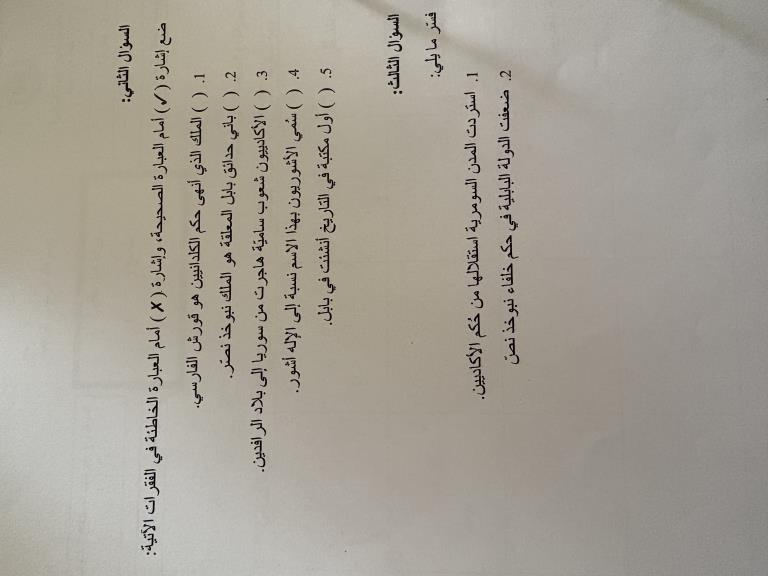 السؤال الثاني:
ضع إشارة (✓) أمام العبارة الصحيحة، وإشارة (✗) أمام العبارة الخاطئة في الفقرات الآتية:
1. ( ) الملك الذي أنهى حكم الكلدانيين هو قورش الفارسي.
2. ( ) باني حدائق بابل المعلقة هو الملك نبوخذ نصّر.
3. ( ) الأكاديون شعوب ساميّة هاجرت من سوريا إلى بلاد الرافدين.
4. ( ) سُمي الأشوريون بهذا الاسم نسبة إلى الإله أشور.
5. ( ) أول مكتبة في التاريخ أنشئت في بابل.
السؤال الثالث:
فسّر ما يلي:
1. استردت المدن السومرية استقلالها من حُكم الأكاديين.
2. ضعفت الدولة البابلية في حكم خلفاء نبوخذ نصّ